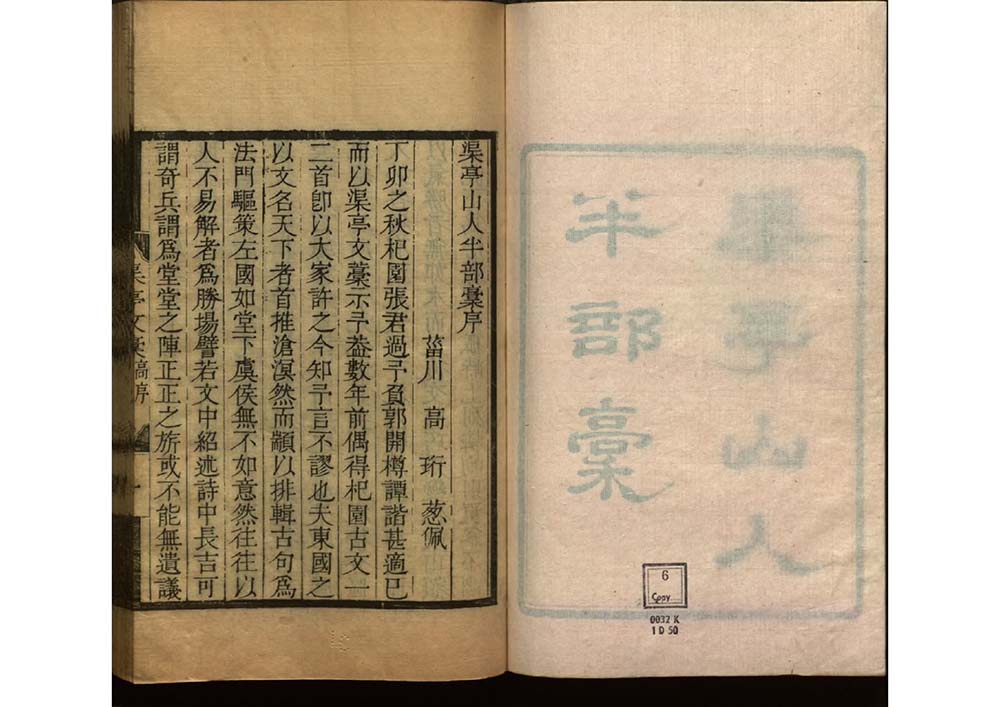 渠亭山人
半部稾
6
Copy
0032 K
1 D 50
渠亭山人半部稾序
菑川 高 珩 葱佩
丁卯之秋杞園張君過予負郭開樽譚諧甚適已
而以渠亭文藁示予葢數年前偶得杞園古文一
二首卽以大家許之今知予言不謬也夫東國之
以文名天下者首推滄溟然而顓以排輯古句爲
法門驅策左國如堂下虞侯無不如意然往往以
人不易解者爲勝場譬若文中紹述詩中長吉可
謂奇兵謂爲堂堂之陣正正之旂或不能無遺議
渠亭文稾 序
一